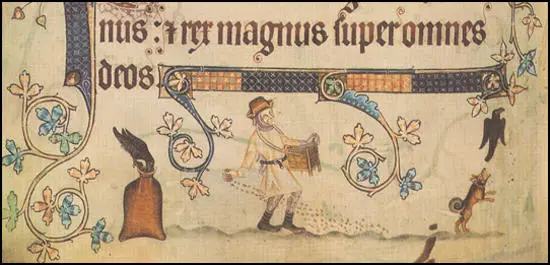 nus : ⁊ rex magnus super omnes
deos